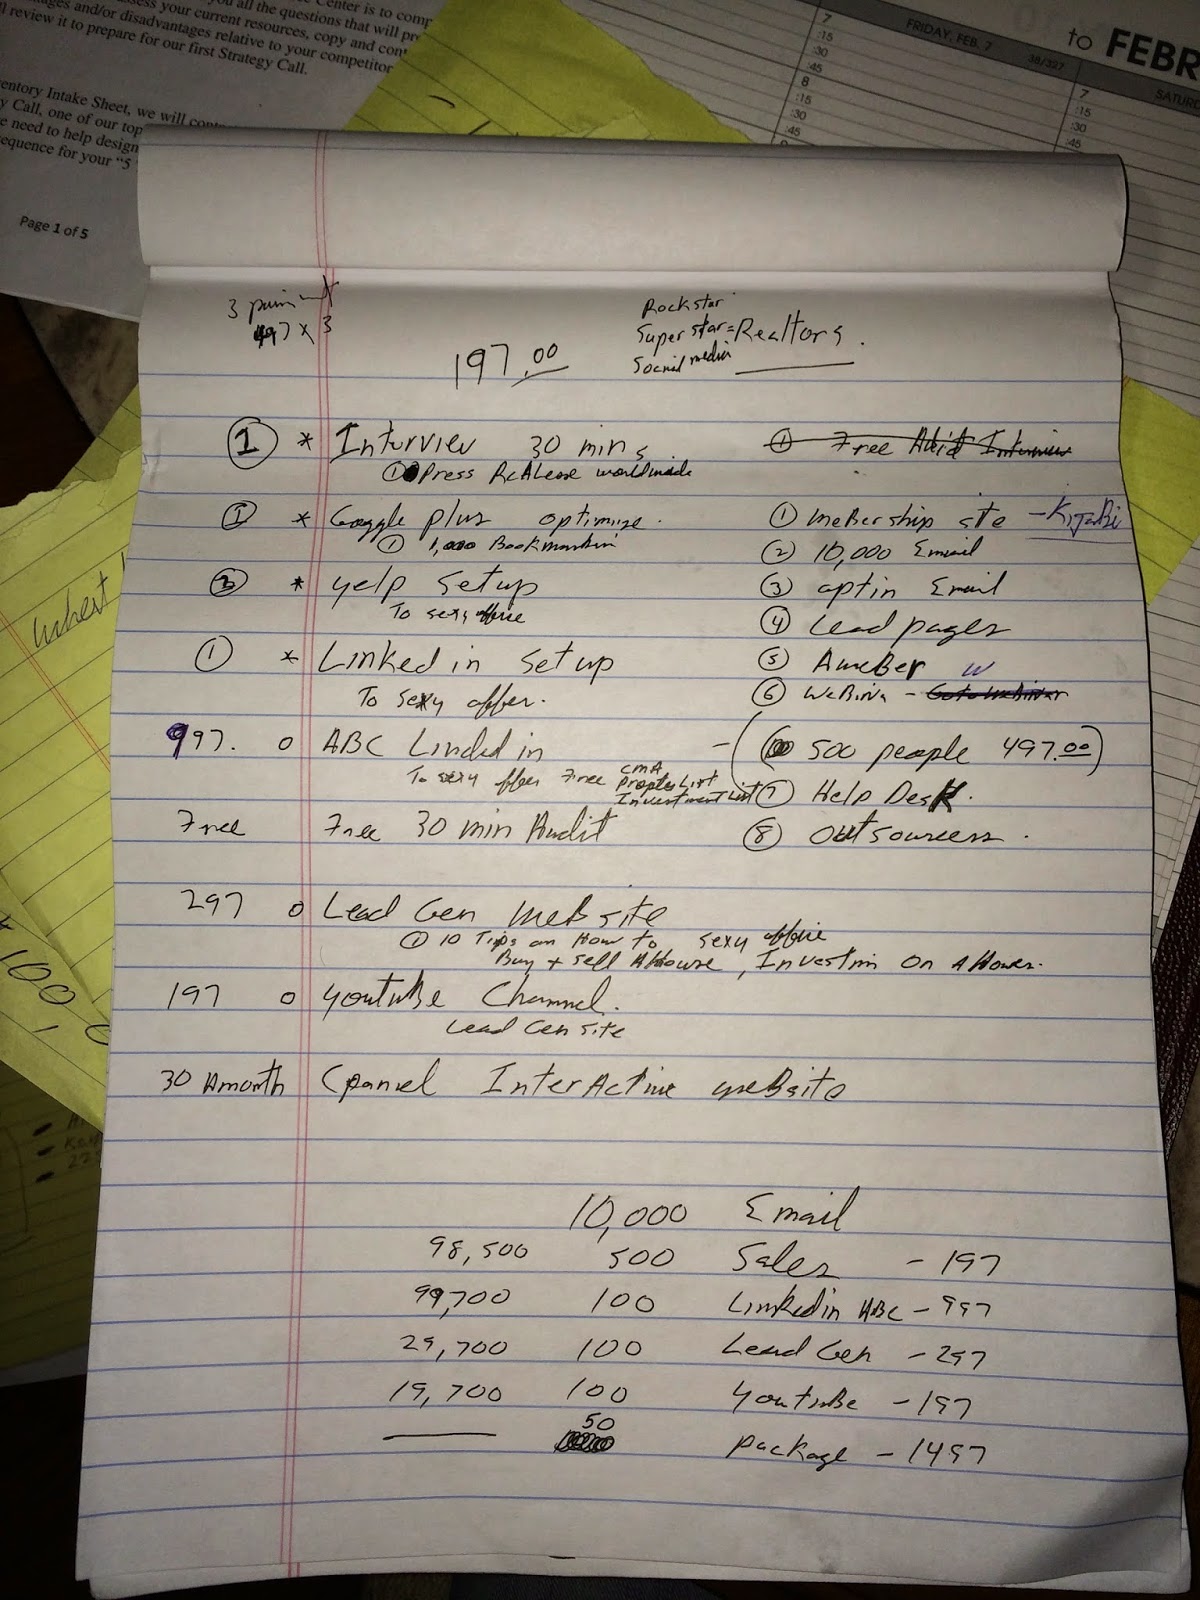 Center is to comp
assess your current resources, copy and cont
ages and/or disadvantages relative to your competitor
ll review it to prepare for our first Strategy Call.
ventory Intake Sheet, we will cont
y Call, one of our top
e need to help design
equence for your “5
Page 1 of 5
7
:15
:30
:45
8
:15
:30
:45
FRIDAY, FEB. 7
38/327
to FEBR
SATURD
7
:15
:30
:45
8
:15
:30
:45
3
497 x 3
197.00
Rockstar
Superstar = Realtors.
Social media
1 * Interview 30 mins
1 Press ReALease worldwide
1 Free Interview
1 * Google plus optimize.
1 1,000 Bookmarkin
2 * yelp Setup
To sexy offire
1 * Linked in Set up
To sexy offer.
1 meBership site - KijaBi
2 10,000 Email
3 optin Email
4 Lead pages
5 AweBer w
6 WeBina - Goto weBinar
997. o ABC Linded in
To sexy offer Free CMA
List
Investment List
- ( 500 people 497.00 )
7 Help Desk.
8 Outsourcers.
Free Free 30 min Audit
297 o Lead Gen weBsite
1 10 Tips on How to sexy offire
Buy + sell A House, Investin On A House.
197 o youtuBe Channel.
Lead Gen site
30 Amonth Cpannel InterActive weBsite
10,000 Email
98,500 500 Sales - 197
99,700 100 Linkedin ABC - 997
29,700 100 Lead Gen - 297
19,700 100 youtuBe - 197
50 package - 1497
100